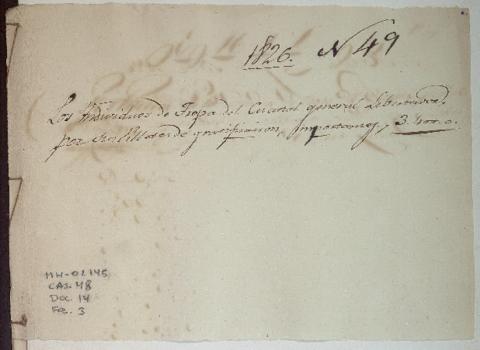 1826. N 49
Los Individuos de Tropa del Cuartel general Libertador
por gratificacion, importamos, 3.
MH-OL145
CAJ. 48
Doc. 14
Fol. 3